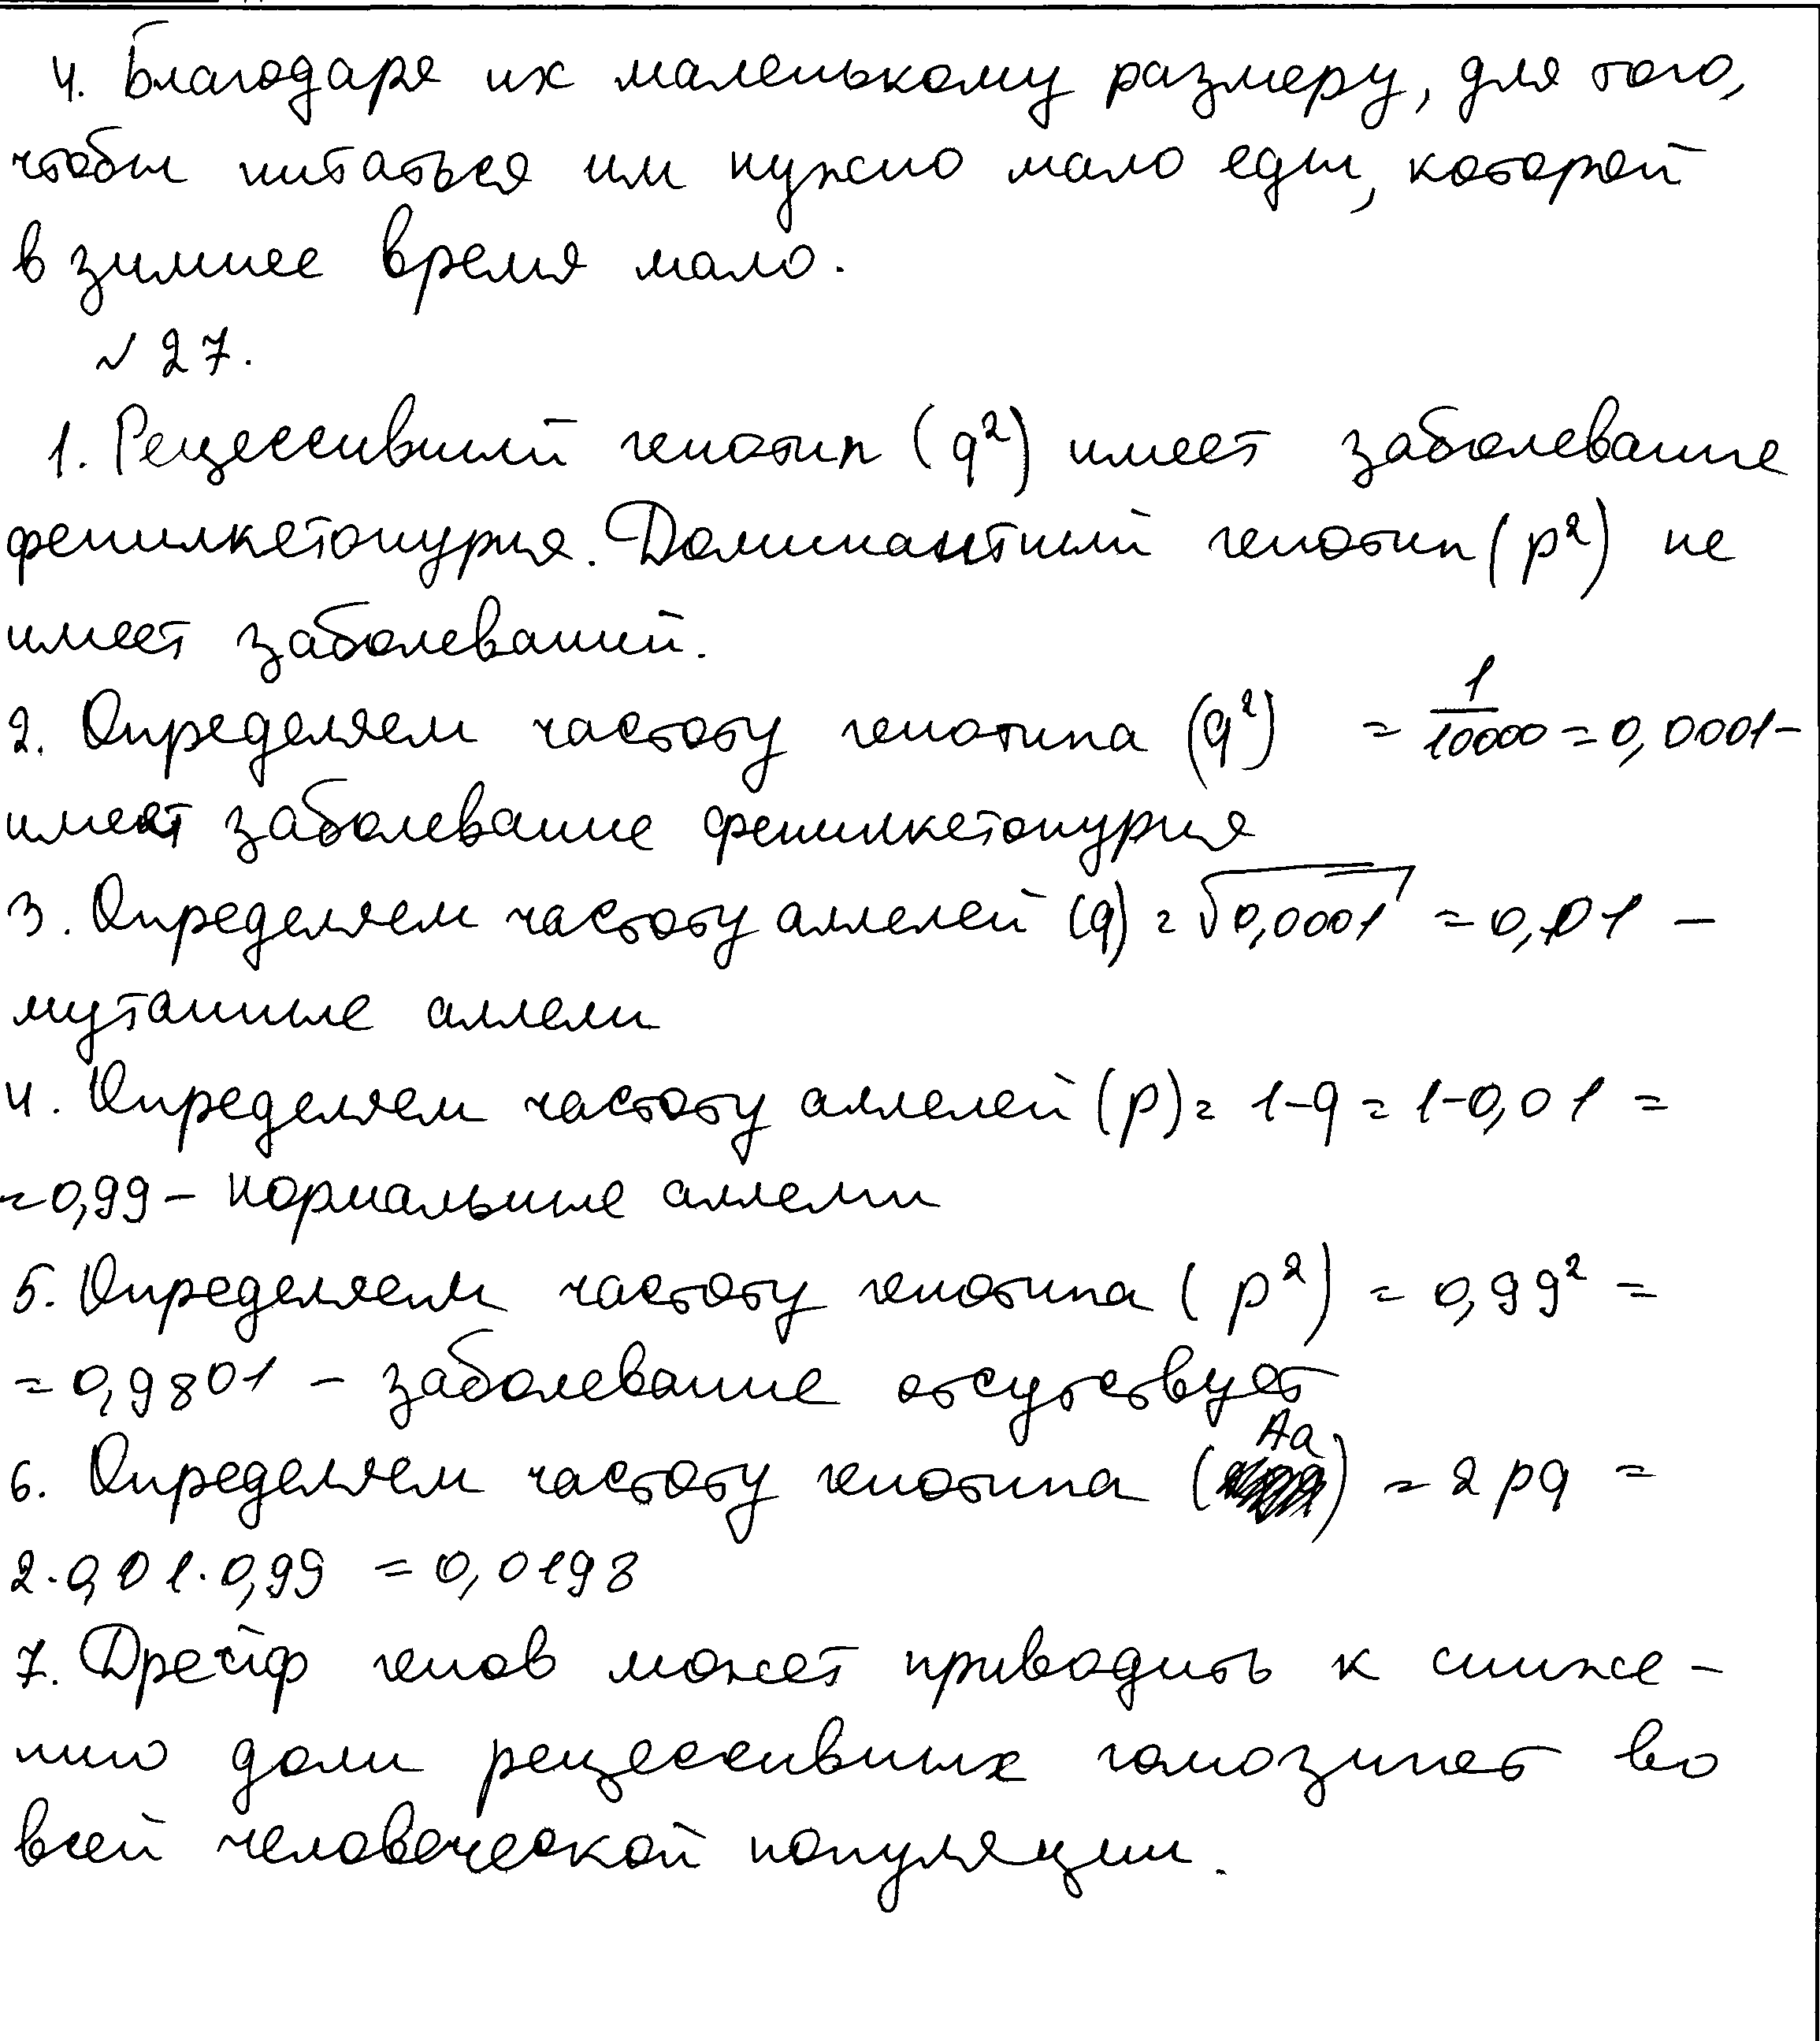 4. Благодаря их маленькому размеру, для того,
чтобы питаться им нужно мало еды, которой
в зимнее время мало.
№ 27.
1. Рецессивный генотип (q²) имеет заболевание
фенилкетонурия. Доминантный генотип (p²) не
имеет заболеваний.
2. Определяем частоту генотипа (q²) = 1/10000 = 0,0001 –
имеют заболевание фенилкетонурия
3. Определяем частоту аллелей (q) = √0,0001 = 0,01 –
мутанные аллели
4. Определяем частоту аллелей (p) = 1-q = 1-0,01 =
= 0,99 – нормальные аллели
5. Определяем частоту генотипа (p²) = 0,99² =
= 0,9801 – заболевание отсутствует
6. Определяем частоту генотипа (Aa) = 2pq =
2·0,01·0,99 = 0,0198
7. Дрейф генов может приводить к сниже-
нию доли рецессивных гомозигот во
всей человеческой популяции.